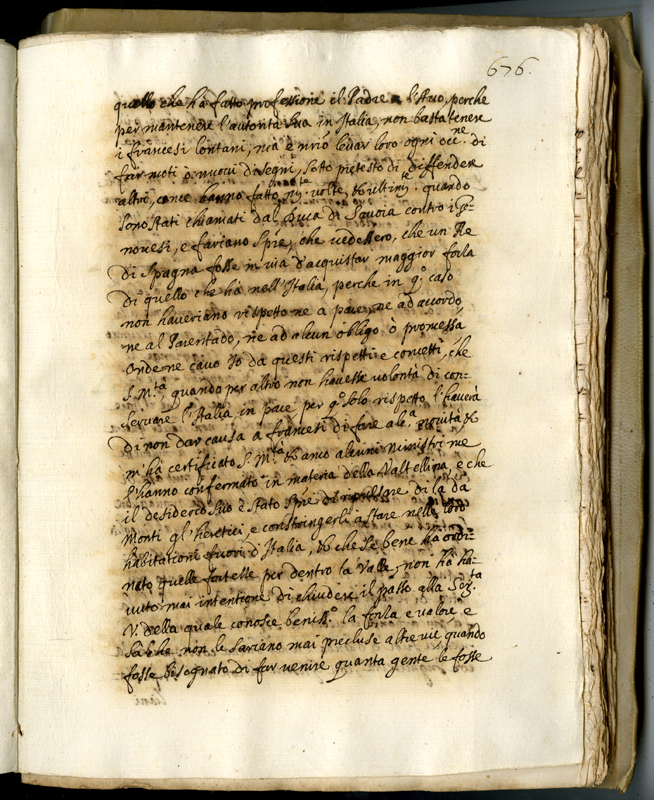 676.
quello che hà fatto professione il Padre e l'Auo, perche
per mantenere l'autorità sua in Italia, non basta tenere
i francesi lontani, mà è nrio leuar loro ogni occ.ne di
far moti ò nuoui disegni, sotto pretesto di diffender
altri, come hanno fatto volte, et ultim.te quando
sono stati chiamati dal Duca di Sauoia contro i Ge-
nouesi, e fariano spre, che uedessero, che un Re
di Spagna fosse in uia d'acquistar maggior forza
di quello che hà nell'Italia, perche in q.o caso
non haueriano rispetto ne a pace, ne ad accordo,
ne al Parentado, ne ad alcun obligo ò promessa
Onde ne cauo Io da questi rispetti e concetti, che
S. M.tà quando per altro non hauesse uolontà di con-
seruare l'Italia in pace per q.o solo rispetto l'hauerà
di non dar causa a francesi di fare alc.a nouità et
m'ha certificato S. M.tà et anco alcuni Ministri me
l'hanno confermato in materia della Valtellina, e che
il desiderio suo è stato spre di di la da
Monti gl'heretici, e constringerli a stare nelle loro
habitationi fuori d'Italia, et che se bene ha ordi-
nato quelle fortezze per dentro la Valle, non hà ha-
uuto mai intentione di chiudere il passo alla Ser.tà
V. della quale conosce beniss.o la forza e ualore, e
sà che non le sariano mai precluse altre uie quando
fosse bisognato di far uenire quanta gente le fosse